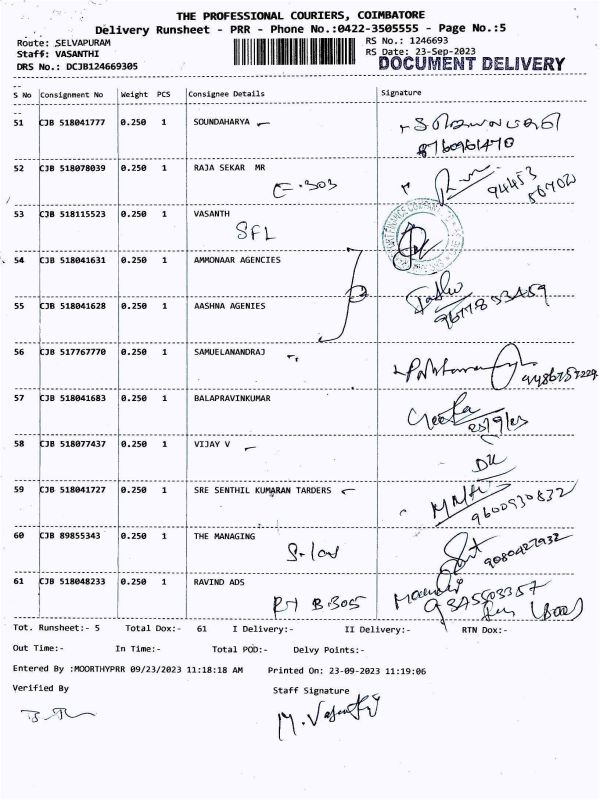 THE PROFESSIONAL COURIERS, COIMBATORE
Delivery Runsheet - PRR - Phone No.:0422-3505555 - Page No.:5
Route: SELVAPURAM RS No.: 1246693
Staff: VASANTHI RS Date: 23-Sep-2023
DRS No.: DCJB124669305 DOCUMENT DELIVERY
S No Consignment No Weight PCS Consignee Details Signature
51 CJB 518041777 0.250 1 SOUNDHARYA
8760961470
52 CJB 518078039 0.250 1 RAJA SEKAR MR
E-303 94453
53 CJB 518115523 0.250 1 VASANTH
SFL
54 CJB 518041631 0.250 1 AMMONAAR AGENCIES
55 CJB 518041628 0.250 1 AASHNA AGENIES
56 CJB 517767770 0.250 1 SAMUELANANDRAJ
57 CJB 518041683 0.250 1 BALAPRAVINKUMAR
Geetha
58 CJB 518077437 0.250 1 VIJAY V
59 CJB 518041727 0.250 1 SRE SENTHIL KUMARAN TARDERS
9600930832
60 CJB 89855343 0.250 1 THE MANAGING
9080427932
61 CJB 518048233 0.250 1 RAVIND ADS
B.305
Tot. Runsheet:- 5 Total Dox:- 61 I Delivery:- II Delivery:- RTN Dox:-
Out Time:- In Time:- Total POD:- Delvy Points:-
Entered By :MOORTHYPRR 09/23/2023 11:18:18 AM Printed On: 23-09-2023 11:19:06
Verified By Staff Signature
M. Vasanthi